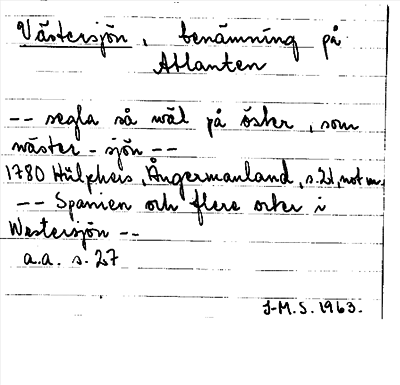 Västersjön, benämning på
Atlanten
-- segla så wäl på öster, som
wäster-sjön --
1780 Hülphers, Ångermanland, s. 21, not m.
-- Spanien och flere orter i
Westersjön --
a.a. s. 27
J-M.S. 1963.